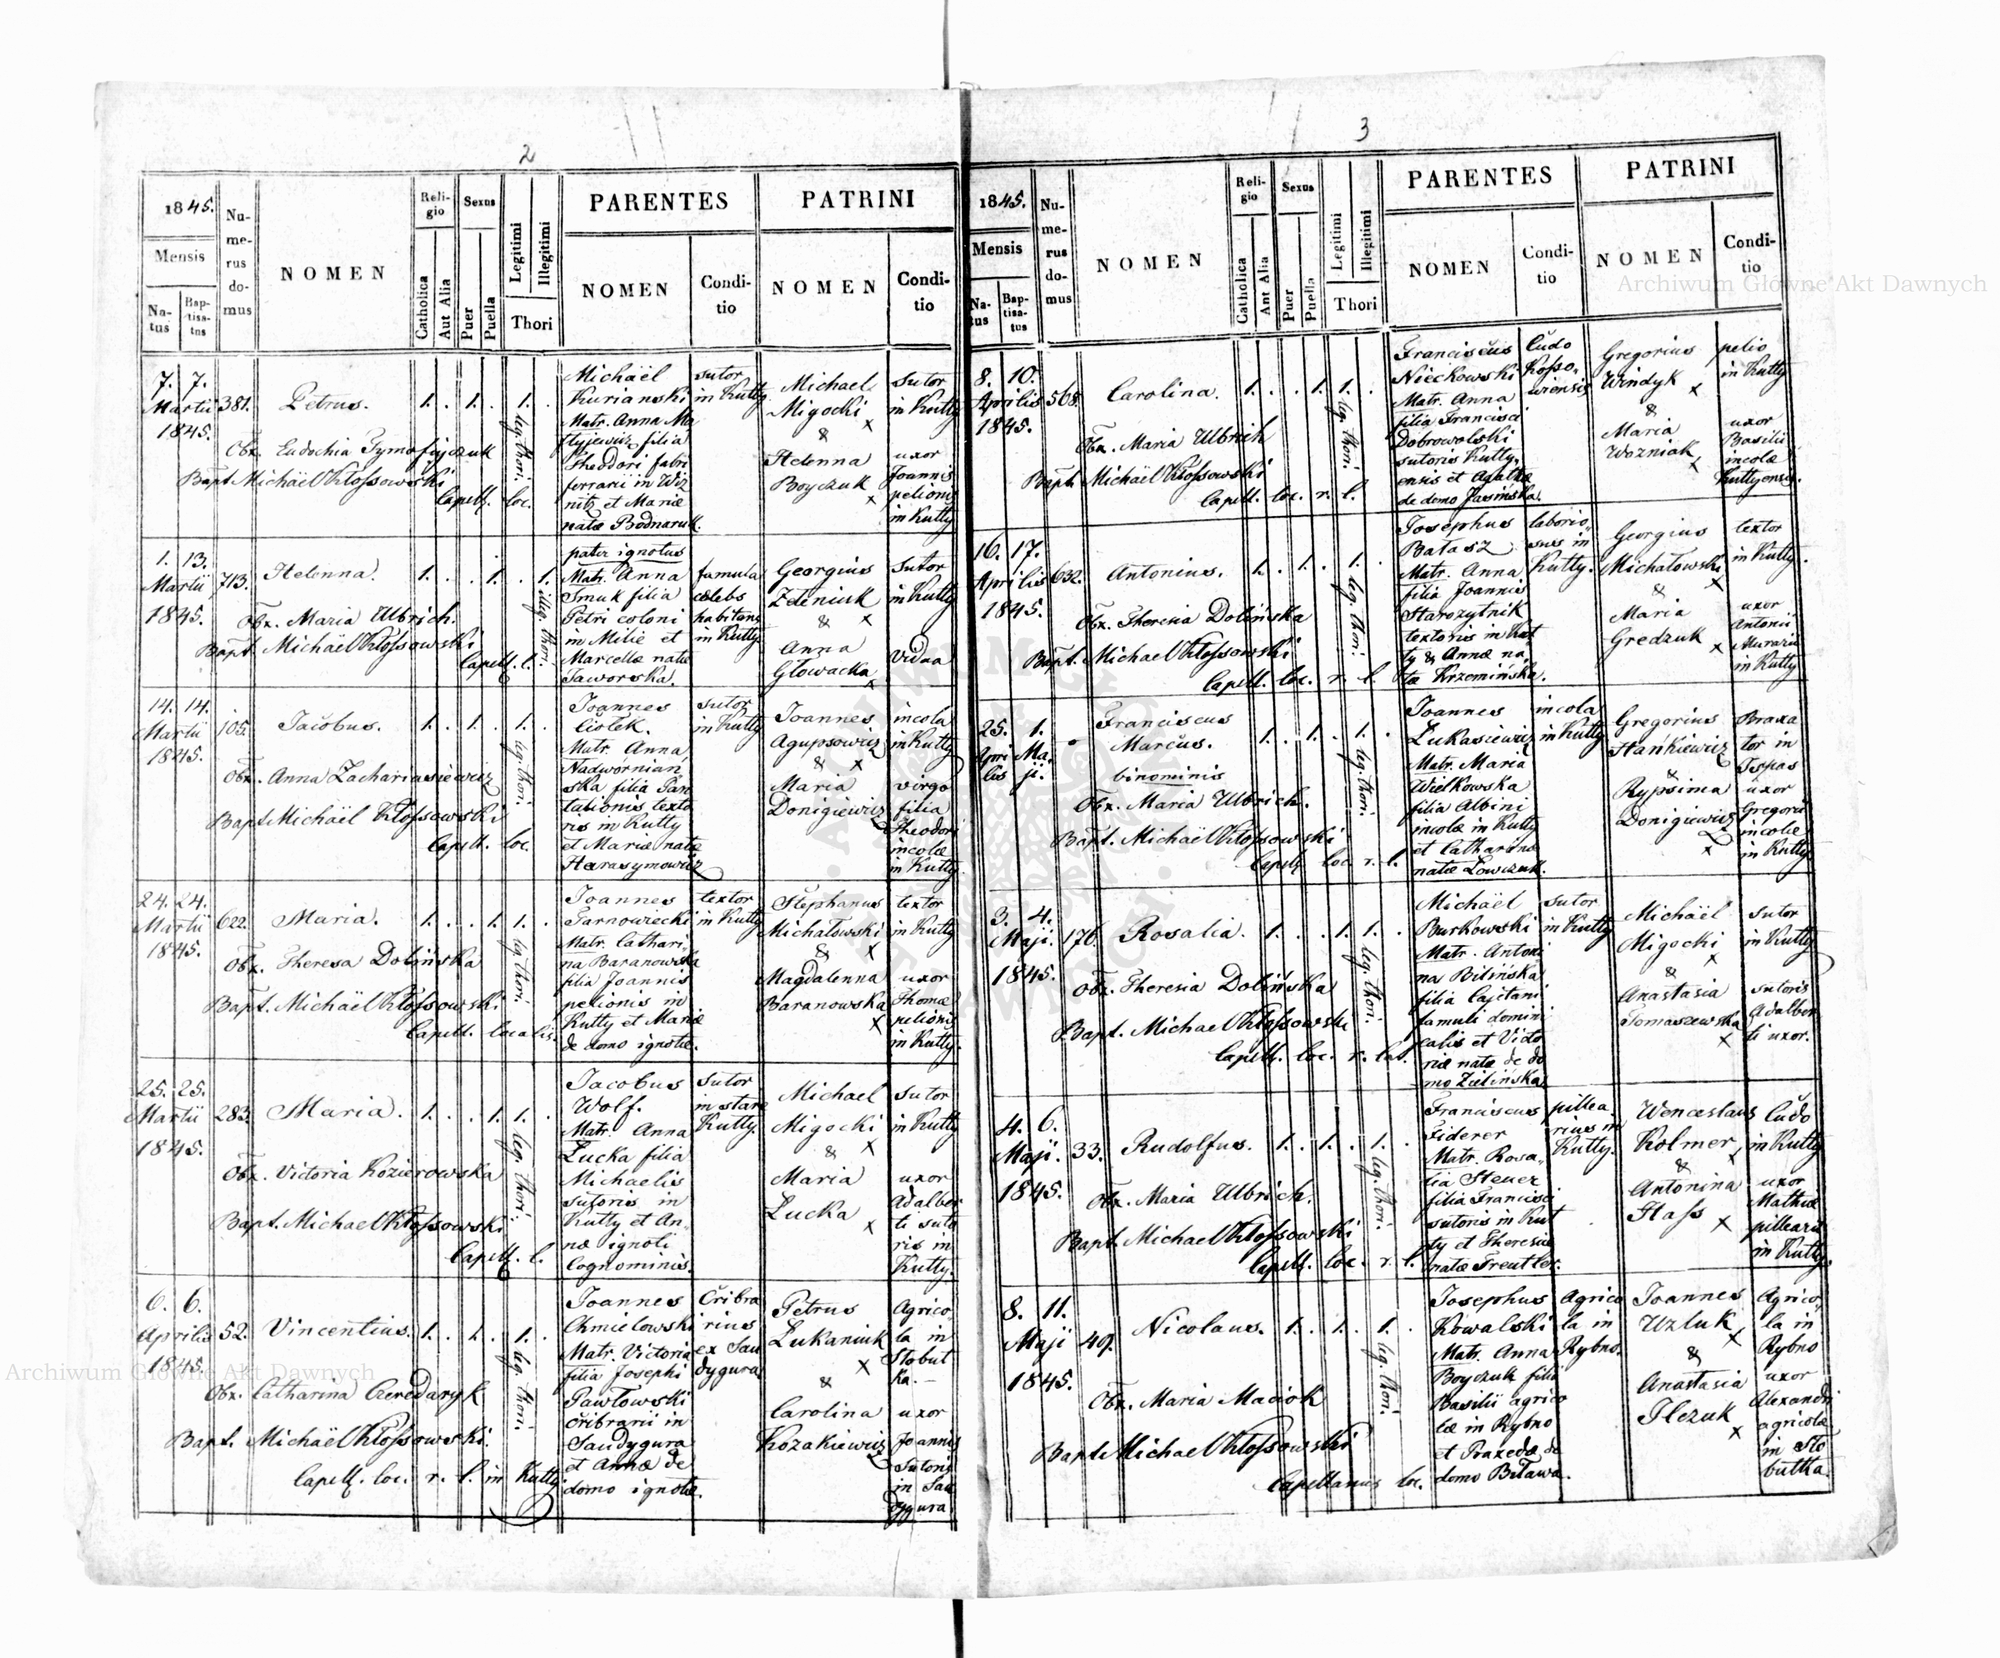 2
1845.
Mensis
Na-
tus
Bap-
tisa-
tus
Nu-
me-
rus
do-
mus
NOMEN
Reli-
gio
Catholica
Aut Alia
Sexus
Puer
Puella
Legitimi
Illegitimi
Thori
PARENTES
NOMEN
Condi-
tio
PATRINI
NOMEN
Condi-
tio
7. 7.
Martii
1845.
381.
Petrus.
1. . 1. . 1. .
leg. thori.
Obx. Eudochia Tymofijczuk
Bapt. Michäel Kłossowski
Capell. loc.
Michäel
Kurianski
Matr. Anna Ma
tyjewicz filia
Theodori fabri
ferrarii in Wiz
nitz et Mariæ
natæ Bodnaruk.
sutor
in Kutty
Michael
Migocki
x
&
Helenna
Boyczuk
x
Sutor
in Kutty
uxor
Joannis
pelionis
in Kutty
1. 13.
Martii
1845.
713.
Helenna.
1. . . 1. . 1.
illeg. thori.
Obx. Maria Ulbrich.
Bapt. Michäel Kłossowski
Capell. l.
pater ignotus
Matr. Anna
Smuk filia
Petri coloni
in Milie et
Marcellæ natæ
Jaworska.
famula
cœlebs
habitans
in Kutty
Georgius
Zdeniuk
& x
Anna
Głowacka
x
Sutor
in Kutty
vidua
14. 14.
Martii
1845.
105.
Jacobus.
1. . 1. . 1. .
leg. thori.
Obx. Anna Zachariasiewicz
Bapt. Michäel Kłossowski
Capell. loc.
Joannes
Ciołek.
Matr. Anna
Nadwórnian
ska filia Pan
talionis texto
ris in Kutty
et Mariæ natæ
Harasymowicz
sutor
in Kutty
Joannes
Agupsowicz
& x
Maria
Donigiewicz
incola
in Kutty
virgo
filia
Theodori
incolæ
in Kutty
24. 24.
Martii
1845.
622.
Maria.
1. . . 1. 1. .
leg. thori.
Obx. Theresa Dolińska
Bapt. Michäel Kłossowski
Capell. localis.
Joannes
Tarnowiecki
Matr. Cathari
na Baranowska
filia Joannis
pelionis in
Kutty et Mariæ
de domo ignotæ.
textor
in Kutty
Stephanus
Michałowski
& x
Magdalenna
Baranowska
x
textor
in Kutty
uxor
Thomæ
pelionis
in Kutty.
25. 25.
Martii
1845.
283.
Maria.
1. . . 1. 1. .
leg. thori.
Obx. Victoria Kozierowska
Bapt. Michael Kłossowski
Capell. l.
Jacobus
Wolf.
Matr. Anna
Łucka filia
Michaelis
sutoris in
Kutty et An-
næ ignoti
Cognominis.
Sutor
in stare
Kutty.
Michael
Migocki
& x
Maria
Łucka
x
Sutor
in Kutty
uxor
Adalber
ti suto
ris in
Kutty.
6. 6.
Aprilis
1845.
52.
Vincentius.
1. . 1. . 1. .
leg. thori.
Obx. Catharina Czeredaryk
Bapt. Michäel Kłossowski.
Capell. loc. r. l. in Kutty
Joannes
Chmielowski
Matr. Victoria
filia Josephi
Pawłowski
Cribrarii in
Jaudygura
et Annæ de
domo ignotæ.
Cribra
rius
ex Jau
dygura
Petrus
Łukaniuk
x
&
Carolina
Kozakiewicz
Agrico
la in
Słobut
ka.-
uxor
Joannis
Sutoris
in Jau
dygura
3
1845.
Mensis
Na-
tus
Bap-
tisa-
tus
Nu-
me-
rus
do-
mus
NOMEN
Reli-
gio
Catholica
Aut Alia
Sexus
Puer
Puella
Legitimi
Illegitimi
Thori
PARENTES
NOMEN
Condi-
tio
PATRINI
NOMEN
Condi-
tio
8. 10.
Aprilis
1845.
568.
Carolina.
1. . . 1. 1. .
leg. thori.
Obx. Maria Ulbrich
Bapt. Michäel Kłossowski
Capell. loc. r. l.
Franciscus
Nieckowski
Matr. Anna
filia Francisci
Dobrowolski
sutoris Kutty-
ensis et Agathæ
de domo Jasińska.
Ludo
Kosso-
wiensis
Gregorius
Windyk
x
&
Maria
Wozniak
x
pelio
in Kutty
uxor
Basilii
incolæ
Kuttyensis.
16. 17.
Aprilis
1845.
632.
Antonius.
1. . 1. . 1. .
leg. thori.
Obx. Theresia Dolińska
Bapt. Michael Kłossowski
Capell. loc. r. l.
Josephus
Bałasz
Matr. Anna
filia Joannis
Starozytnik
textoris in Kut
ty & Annæ na
tæ Krzemińska.
laborio-
sus in
Kutty.
Georgius
Michałowski
& x
Maria
Gredzuk
x
textor
in Kutty.
uxor
Antonii
Murarii
in Kutty
25. 1.
Apri Ma-
lis ji.
Franciscus
Marcus.
binominis
1. . 1. . 1. .
leg. thori.
Obx. Maria Ulbrich.
Bapt. Michäel Kłossowski
Capell. loc. r. l.
Joannes
Łukasiewicz
Matr. Maria
Wielkowska
filia Albini
incolæ in Kutty
et Catharinæ
natæ Łowczuk.
incola
in Kutty
Gregorius
Stankiewicz
&
Rypsima
Donigiewicz
x
Braxa
tor in
Ispas
uxor
Gregorii
incolæ
in Kutty
3. 4.
Maji.
1845.
176.
Rosalia.
1. . . 1. 1. .
leg. thori.
Obx. Theresia Dolińska
Bapt. Michael Kłossowski
Capell. loc. r. lat.
Michäel
Burkowski
Matr. Antoni
na Bilińska
filia Cajetani
famuli domini
calis et Victo
riæ natæ de do
mo Zielińska
sutor
in Kutty
Michäel
Migocki
x
&
Anastasia
Tomaszewska
x
Sutor
in Kutty
sutoris
Adalber
ti uxor.
4. 6.
Maji.
1845.
33.
Rudolfus.
1. . 1. . 1. .
leg. thori.
Obx. Maria Ulbrich.
Bapt. Michael Kłossowski
Capell. loc. r. l.
Franciscus
Fiderer
Matr. Rosa-
lia Steuer
filia Francisci
sutoris in Kut
ty et Theresiæ
natæ Treutler.
pillea
rius in
Kutty.
Wenceslaus
Kolmer
& x
Antonina
Stass
x
Ludo
in Kutty
uxor
Mathiæ
pillearii
in Kutty.
8. 11.
Maji
1845.
49.
Nicolaus.
1. . 1. . 1. .
leg. thori.
Obx. Maria Maciok
Bapt. Michael Kłossowski
Capellanus loc.
Josephus
Kowalski
Matr. Anna
Boyczuk filia
Basilii agrico
læ in Rybno
et Praxedæ de
domo Biława.
Agrico
la in
Rybno.
Joannes
Uzluk
x
&
Anastasia
Ilczuk
x
Agrico-
la in
Rybno
uxor
Alexandri
agricolæ
in Sło
buttka.
Archiwum Główne Akt Dawnych
Archiwum Główne Akt Dawnych